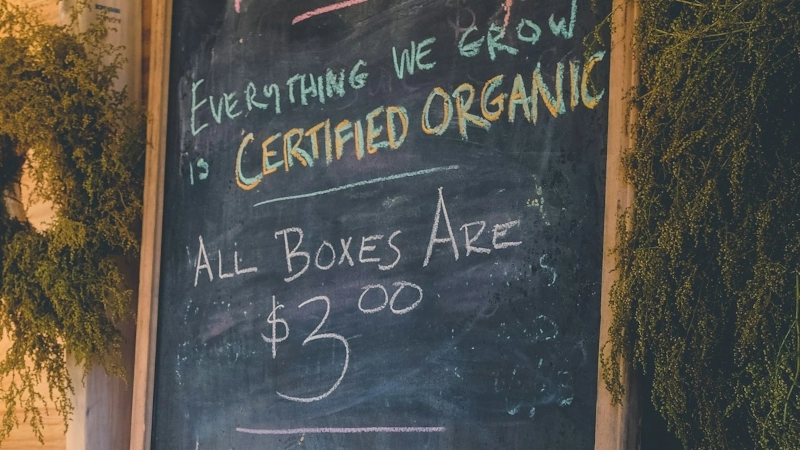 EVERYTHING WE GROW
is CERTIFIED ORGANIC
ALL BOXES ARE
$3.00